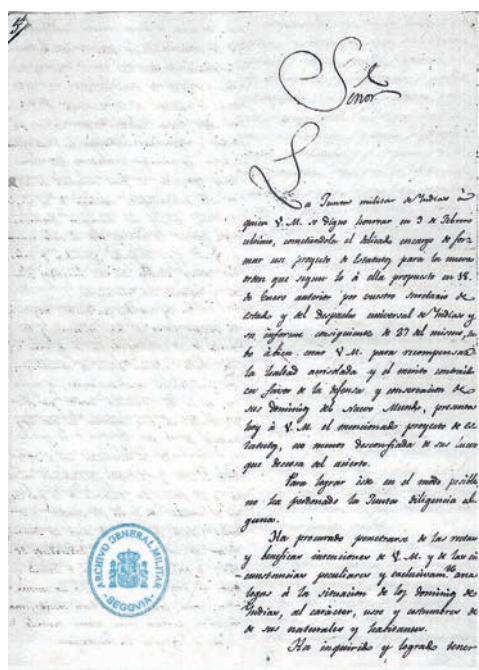 5
Señor
La Junta militar de Indias à
quien V. M. se digno honrar en 3 de Febrero
ultimo, cometiendola el delicado encargo de for-
mar un proyecto de Estatutos para la nueva
orden que segun lo à ella propuesto en 18.
de Enero anterior por vuestro Secretario de
estado y del despacho universal de Indias y
su informe consiguiente de 27 del mismo, tu
bo à bien crear V. M. para recompensar
la lealtad acrisolada y el merito contraido
en favor de la defensa y conservacion de
sus dominios del Nuevo Mundo, presenta
hoy à V. M. el mencionado proyecto de es
tatutos, no menos desconfiada de sus luces
que deseosa del acierto.
Para lograr este en el modo posible,
no ha perdonado la Junta diligencia al
guna.
Ha procurado penetrarse de las rectas
y beneficas intenciones de V. M. y de las cir
cunstancias peculiares y exclusivam.te ana
logas à la situacion de los dominios de
Indias, al carácter, usos y costumbres de
sus naturales y habitantes.
Ha inquirido y logrado tener
ARCHIVO GENERAL MILITAR
-SEGOVIA-